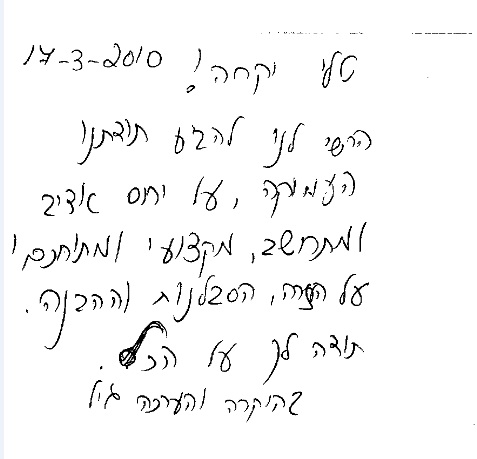 טלי יקרה! 17-3-2010
הרשי לנו להביע תודתנו
העמוקה, על יחס אדיב
ומתחשב, מקצועי ומתוחכם,
על העזרה, הסבלנות וההבנה.
תודה לך על הכל.
בהוקרה והערכה גיל